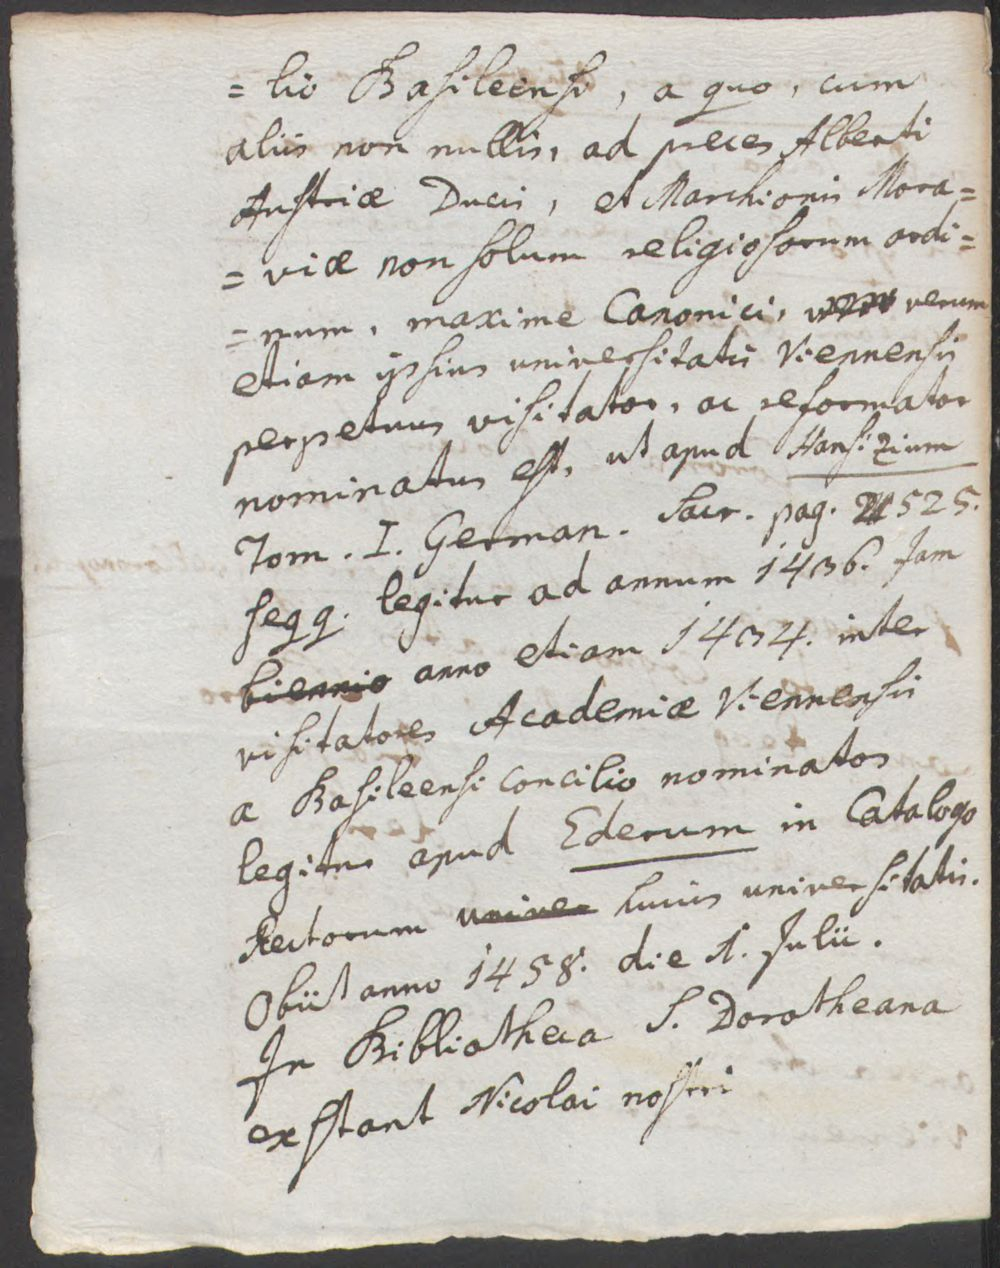 = lio Basileensi, a quo, cum
aliis non nullis, ad preces Alberti
Austriæ Ducis, et Marchionis Mora=
= viæ non solum religiosorum ordi=
= num, maxime Canonici, verum
etiam ipsius universitatis Viennensis
perpetuus visitator, ac reformator
nominatus est, ut apud Hansizium
Tom. I. German. Sacr. pag. 525.
seqq. legitur ad annum 1436. Jam
biennio anno etiam 1434. inter
visitatores Academiæ Viennensis
a Basileensi Concilio nominatos
legitur apud Ederum in Catalogo
Rectorum univer huius universitatis.
Obiit anno 1458. die 1. Julii.
In Bibliotheca S. Dorotheana
exstant Nicolai nostri